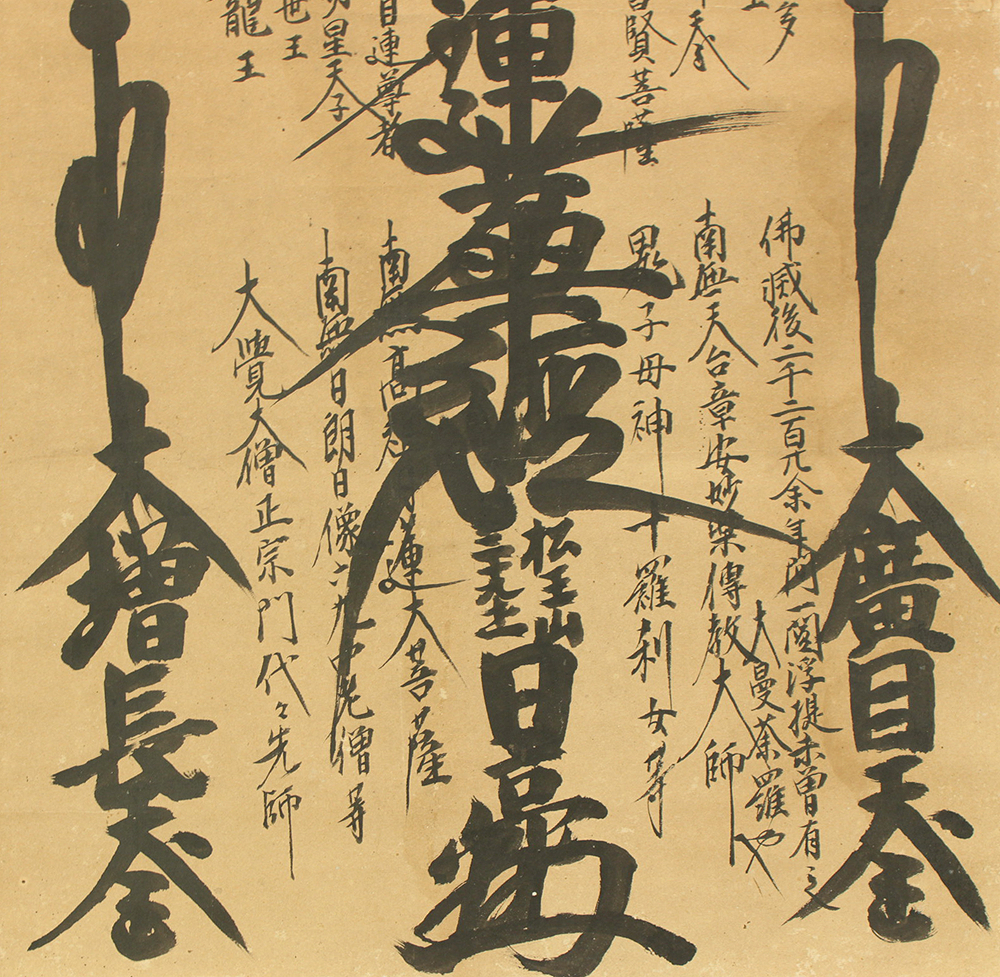 多
天
普賢菩薩
蓮華經
目連尊者
明星天子
世王
龍王
大廣目天王
佛滅後二千二百九余年間一閻浮提未曾有之
大曼荼羅也
南無天台章安妙樂傳教大師
鬼子母神十羅刹女等
松玉山
日亮
南無高祖日蓮大菩薩
南無日朗日像六九中老僧等
大覺大僧正宗門代々先師
大増長天王